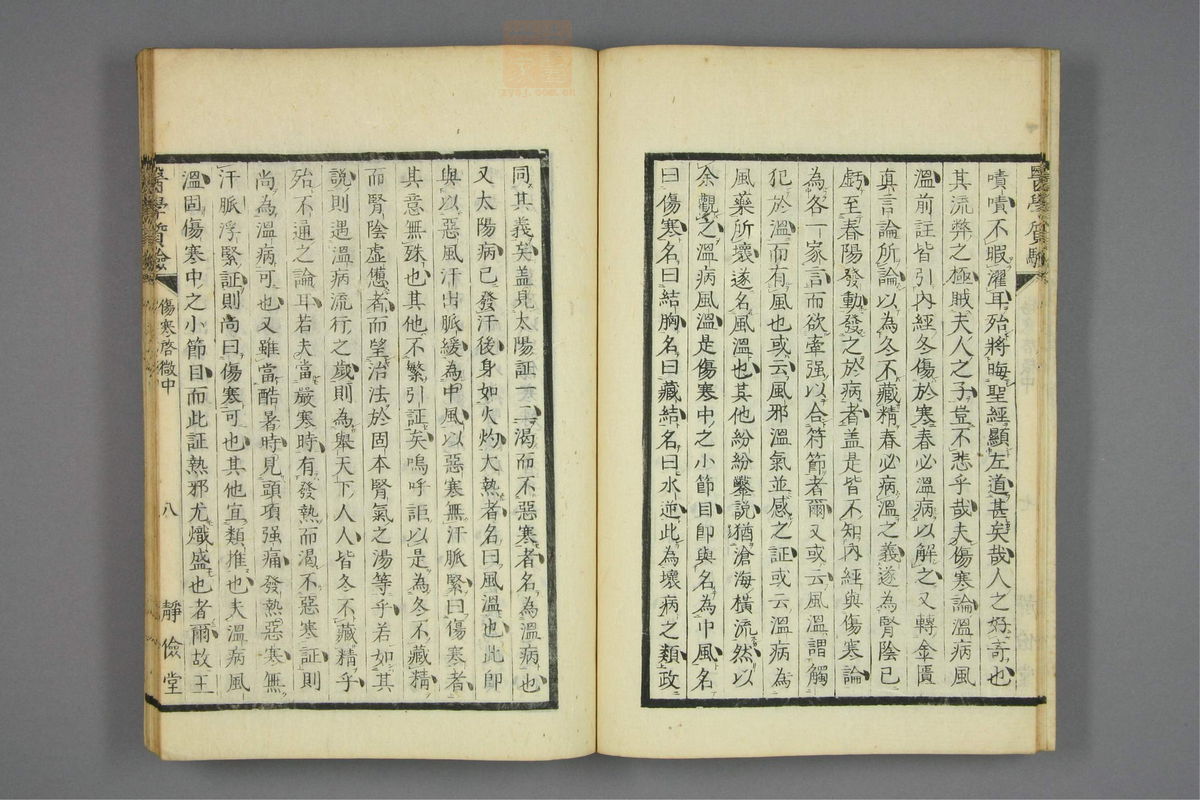 醫學質驗
嘖嘖不暇濯耳殆將晦聖經顯左道甚矣哉人之好奇也
其流弊之極賊夫人之子豈不悲乎哉夫傷寒論溫病風
溫前註皆引內經冬傷於寒春必溫病以解之又轉金匱
真言論所論以為冬不藏精春必病溫之義遂為腎陰已
虧至春陽發動發之於病者盖是皆不知內經與傷寒論
為各一家言而欲牽强以合符節者爾又或云風溫謂觸
犯於溫而有風也或云風邪溫氣並感之証或云溫病為
風藥所壞遂名風溫也其他紛紛鑿說猶滄海橫流然以
余觀之溫病風溫是傷寒中之小節目即與名為中風名
曰傷寒名曰結胸名曰藏結名曰水逆此為壞病之類政
同其義矣盖見太陽証二渴而不惡寒者名為溫病也
又太陽病已發汗後身如火灼大熱者名曰風溫也此即
與以惡風汗出脈緩為中風以惡寒無汗脈緊曰傷寒者
其意無殊也其他不繁引証矣嗚呼詎以是為冬不藏精
而腎陰虛憊者而望治法於固本腎氣之湯等乎若如其
說則遇溫病流行之歲則為舉天下人人皆冬不藏精乎
殆不通之論耳若夫當嚴寒時有發熱而渴不惡寒証則
尚為溫病可也又雖當酷暑時見頭項强痛發熱惡寒無
汗脈浮緊証則尚曰傷寒可也其他宜類推也夫溫病風
溫固傷寒中之小節目而此証熱邪尤熾盛也者爾故王
醫學質驗
傷寒啓微中
八
靜儉堂